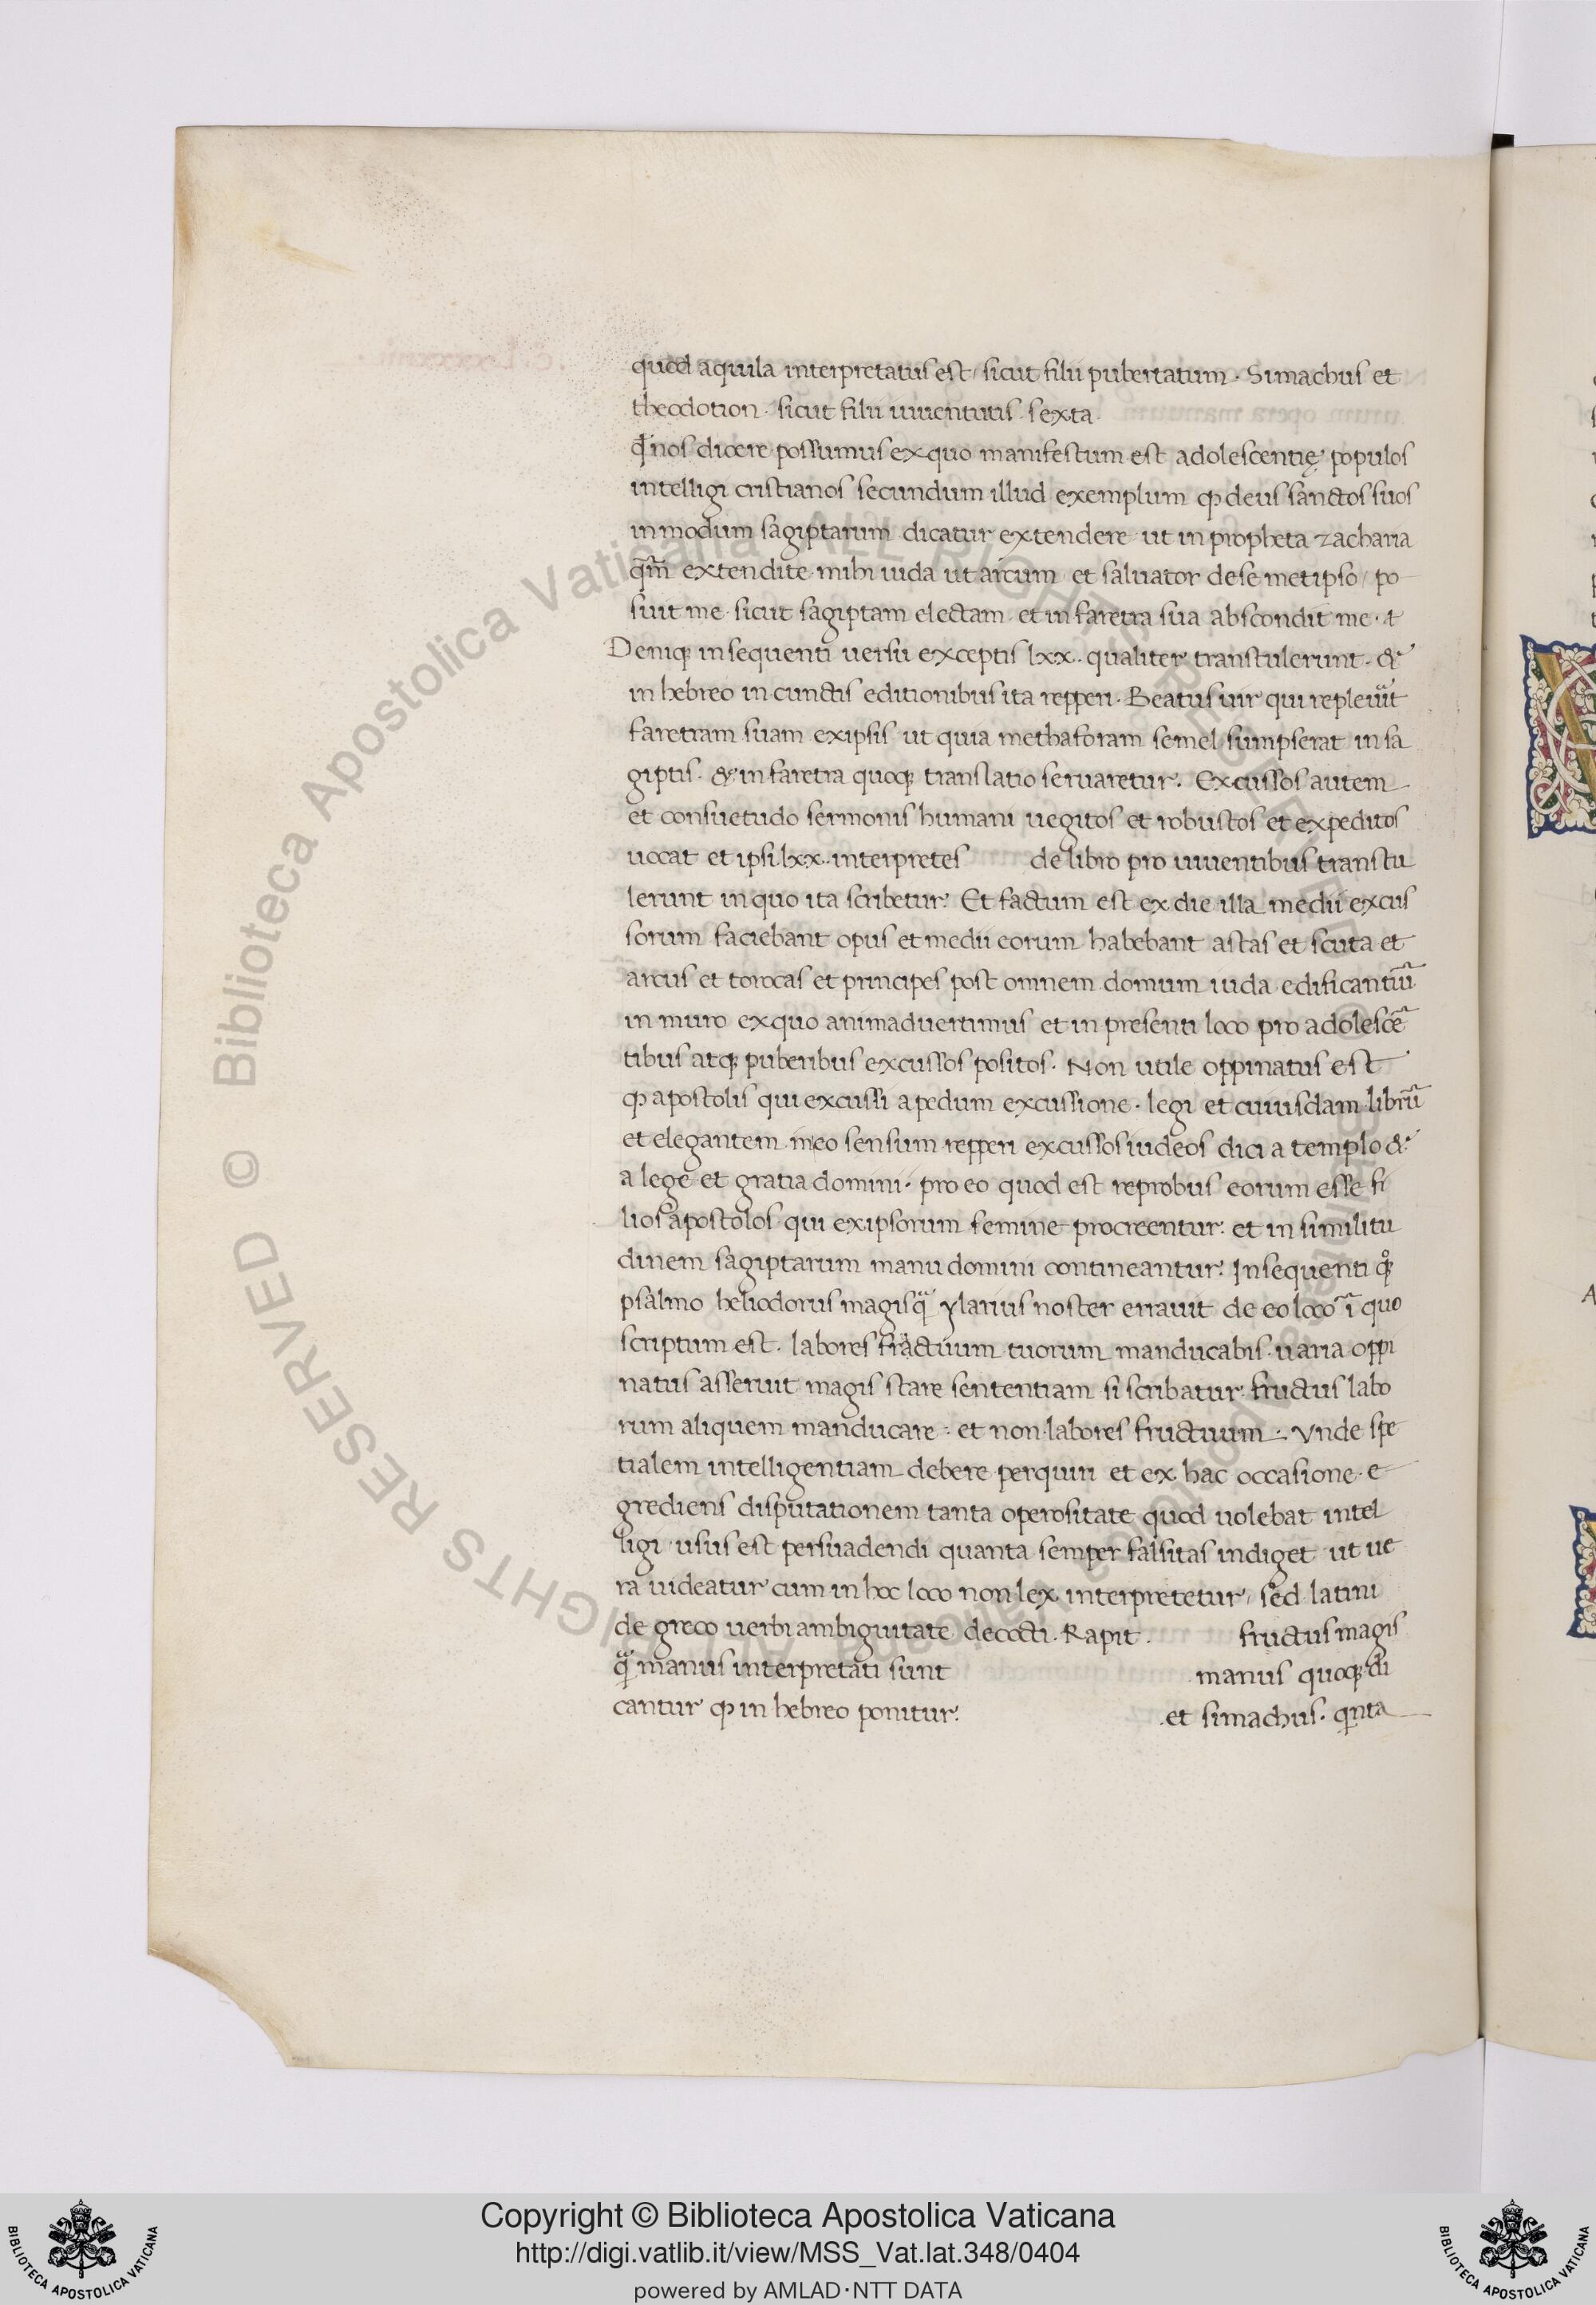 quod aquila interpretatus est / sicut filii pubertatum · Simachus et
theodotion · sicut filii iuuentutis · sexta ·
q̄ nos dicere possumus ex quo manifestum est adolescentię populos
intelligi cristianos secundum illud exemplum ꝙ deus sanctos suos
in modum sagiptarum dicatur extendere ut in propheta zacharia
qm̄ extendite mihi iuda ut arcum et saluator de se metipso / po
suit me sicut sagiptam electam et in faretra sua abscondit me ·
Deniqꝫ in sequenti uersu exceptis lxx · qualiter transtulerunt · &
in hebreo in cunctis editionibus ita repperi · Beatus uir qui repleuit
faretram suam ex ipsis ut quia methaforam semel sumpserat in sa
giptis · & in faretra quoqꝫ translatio seruaretur · Excussos autem
et consuetudo sermonis humani uegitos et robustos et expeditos
uocat et ipsi lxx · interpretes de libro pro iuuentibus transtu
lerunt in quo ita scribetur · Et factum est ex die illa medii excus
sorum faciebant opus et medii eorum habebant astas et scuta et
arcus et torocas et principes post omnem domum iuda edificantiū
in muro ex quo animaduertimus et in presenti loco pro adolescē
tibus atqꝫ puberibus excussos positos · Non utile oppinatus est
ꝙ apostolis qui excussi a pedum excussione · legi et cuiusdam librū
et elegantem in eo sensum repperi excussos iudeos dici a templo &
a lege et gratia domini · pro eo quod est reprobus eorum esse fi
lios apostolos qui ex ipsorum semine procreentur · et in similitu
dinem sagiptarum manu domini contineantur · In sequenti qꝫ
psalmo heliodorus magis q̄ ylarius noster errauit de eo loco ī quo
scriptum est · labores fractuum tuorum manducabis · uaria oppi
natus asseruit magis stare sententiam si scribatur · fructus labo
rum aliquem manducare · et non labores fructuum · Vnde spe
tialem intelligentiam debere perquiri et ex hac occasione · e
grediens disputationem tanta operositate quod uolebat intel
ligi usus est persuadendi quanta semper falsitas indiget ut ue
ra uideatur cum in hoc loco non lex interpretetur / sed latini
de greco uerbi ambiguitate decocti · Rapit · fructus magis
q̄ manus interpretati sunt manus quoqꝫ di
cantur ꝙ in hebreo ponitur · et simachus · qnta
© Biblioteca Apostolica Vaticana ALL RIGHTS RESERVED
© Biblioteca Apostolica Vaticana ALL RIGHTS RESERVED
Copyright © Biblioteca Apostolica Vaticana
http://digi.vatlib.it/view/MSS_Vat.lat.348/0404
powered by AMLAD·NTT DATA
BIBLIOTECA APOSTOLICA VATICANA
BIBLIOTECA APOSTOLICA VATICANA